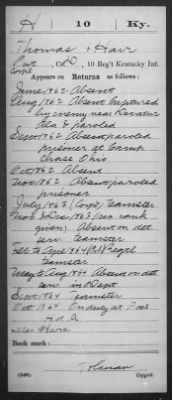 H | 10 | Ky.
Thomas Harr
Pvt
Corpl, Co. D, 10 Reg't Kentucky Inf.
Appears on Returns as follows:
June 1862 Absent
Aug 1862 Absent Captured
by enemy near Decatur
Ala & paroled
Sept 1862 Absent paroled
prisoner at Camp
Chase Ohio
Oct 1862 Absent
Nov 1862 Absent paroled
prisoner
July 1863 (Corpl) Teamster
Nov & Dec 1863 (no rank
given) Absent on det
serv. Teamster
Feb to Apr 1864 Regtl
Teamster
May to Aug 1864 Absent on det
serv. in Dept
Sept 1864 Teamster
Oct 1864 On duty at
Book mark:
Copyist.